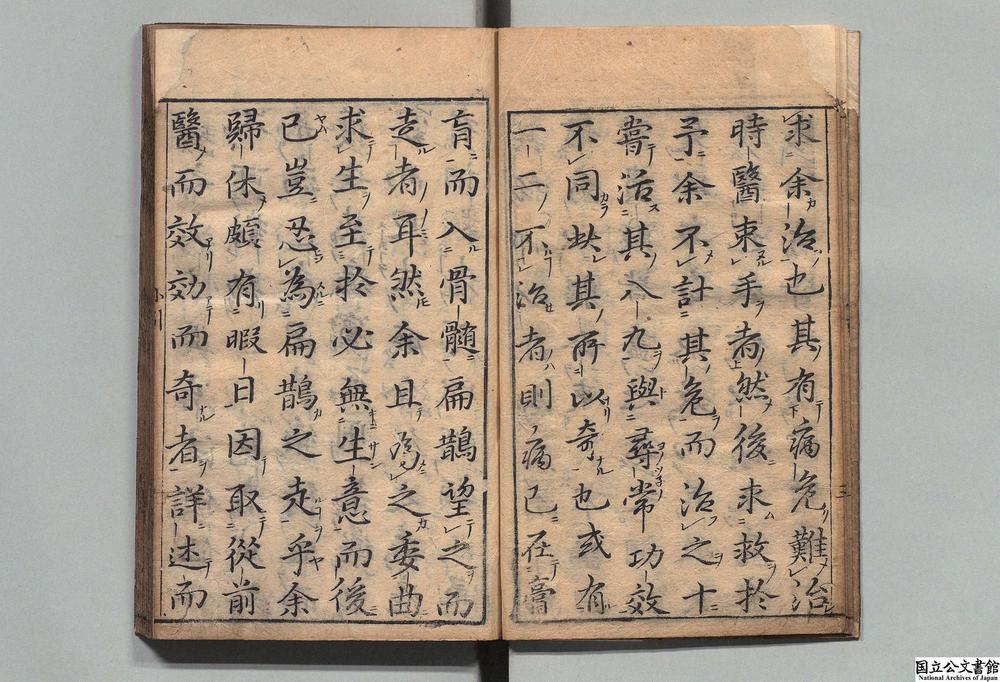 求余治也其有病危難治
時醫束手者然後求救於
予余不計其危而治之十
嘗活其八九與尋常功效
不同此其所以奇也或有
一二不治者則病已在膏
肓而入骨髓扁鵲望之而
走者耳然余且為之委曲
求生至於必無生意而後
已豈忍為扁鵲之走乎余
歸休頗有暇日因取從前
醫而效効而奇者詳述而
三
国立公文書館
National Archives of Japan